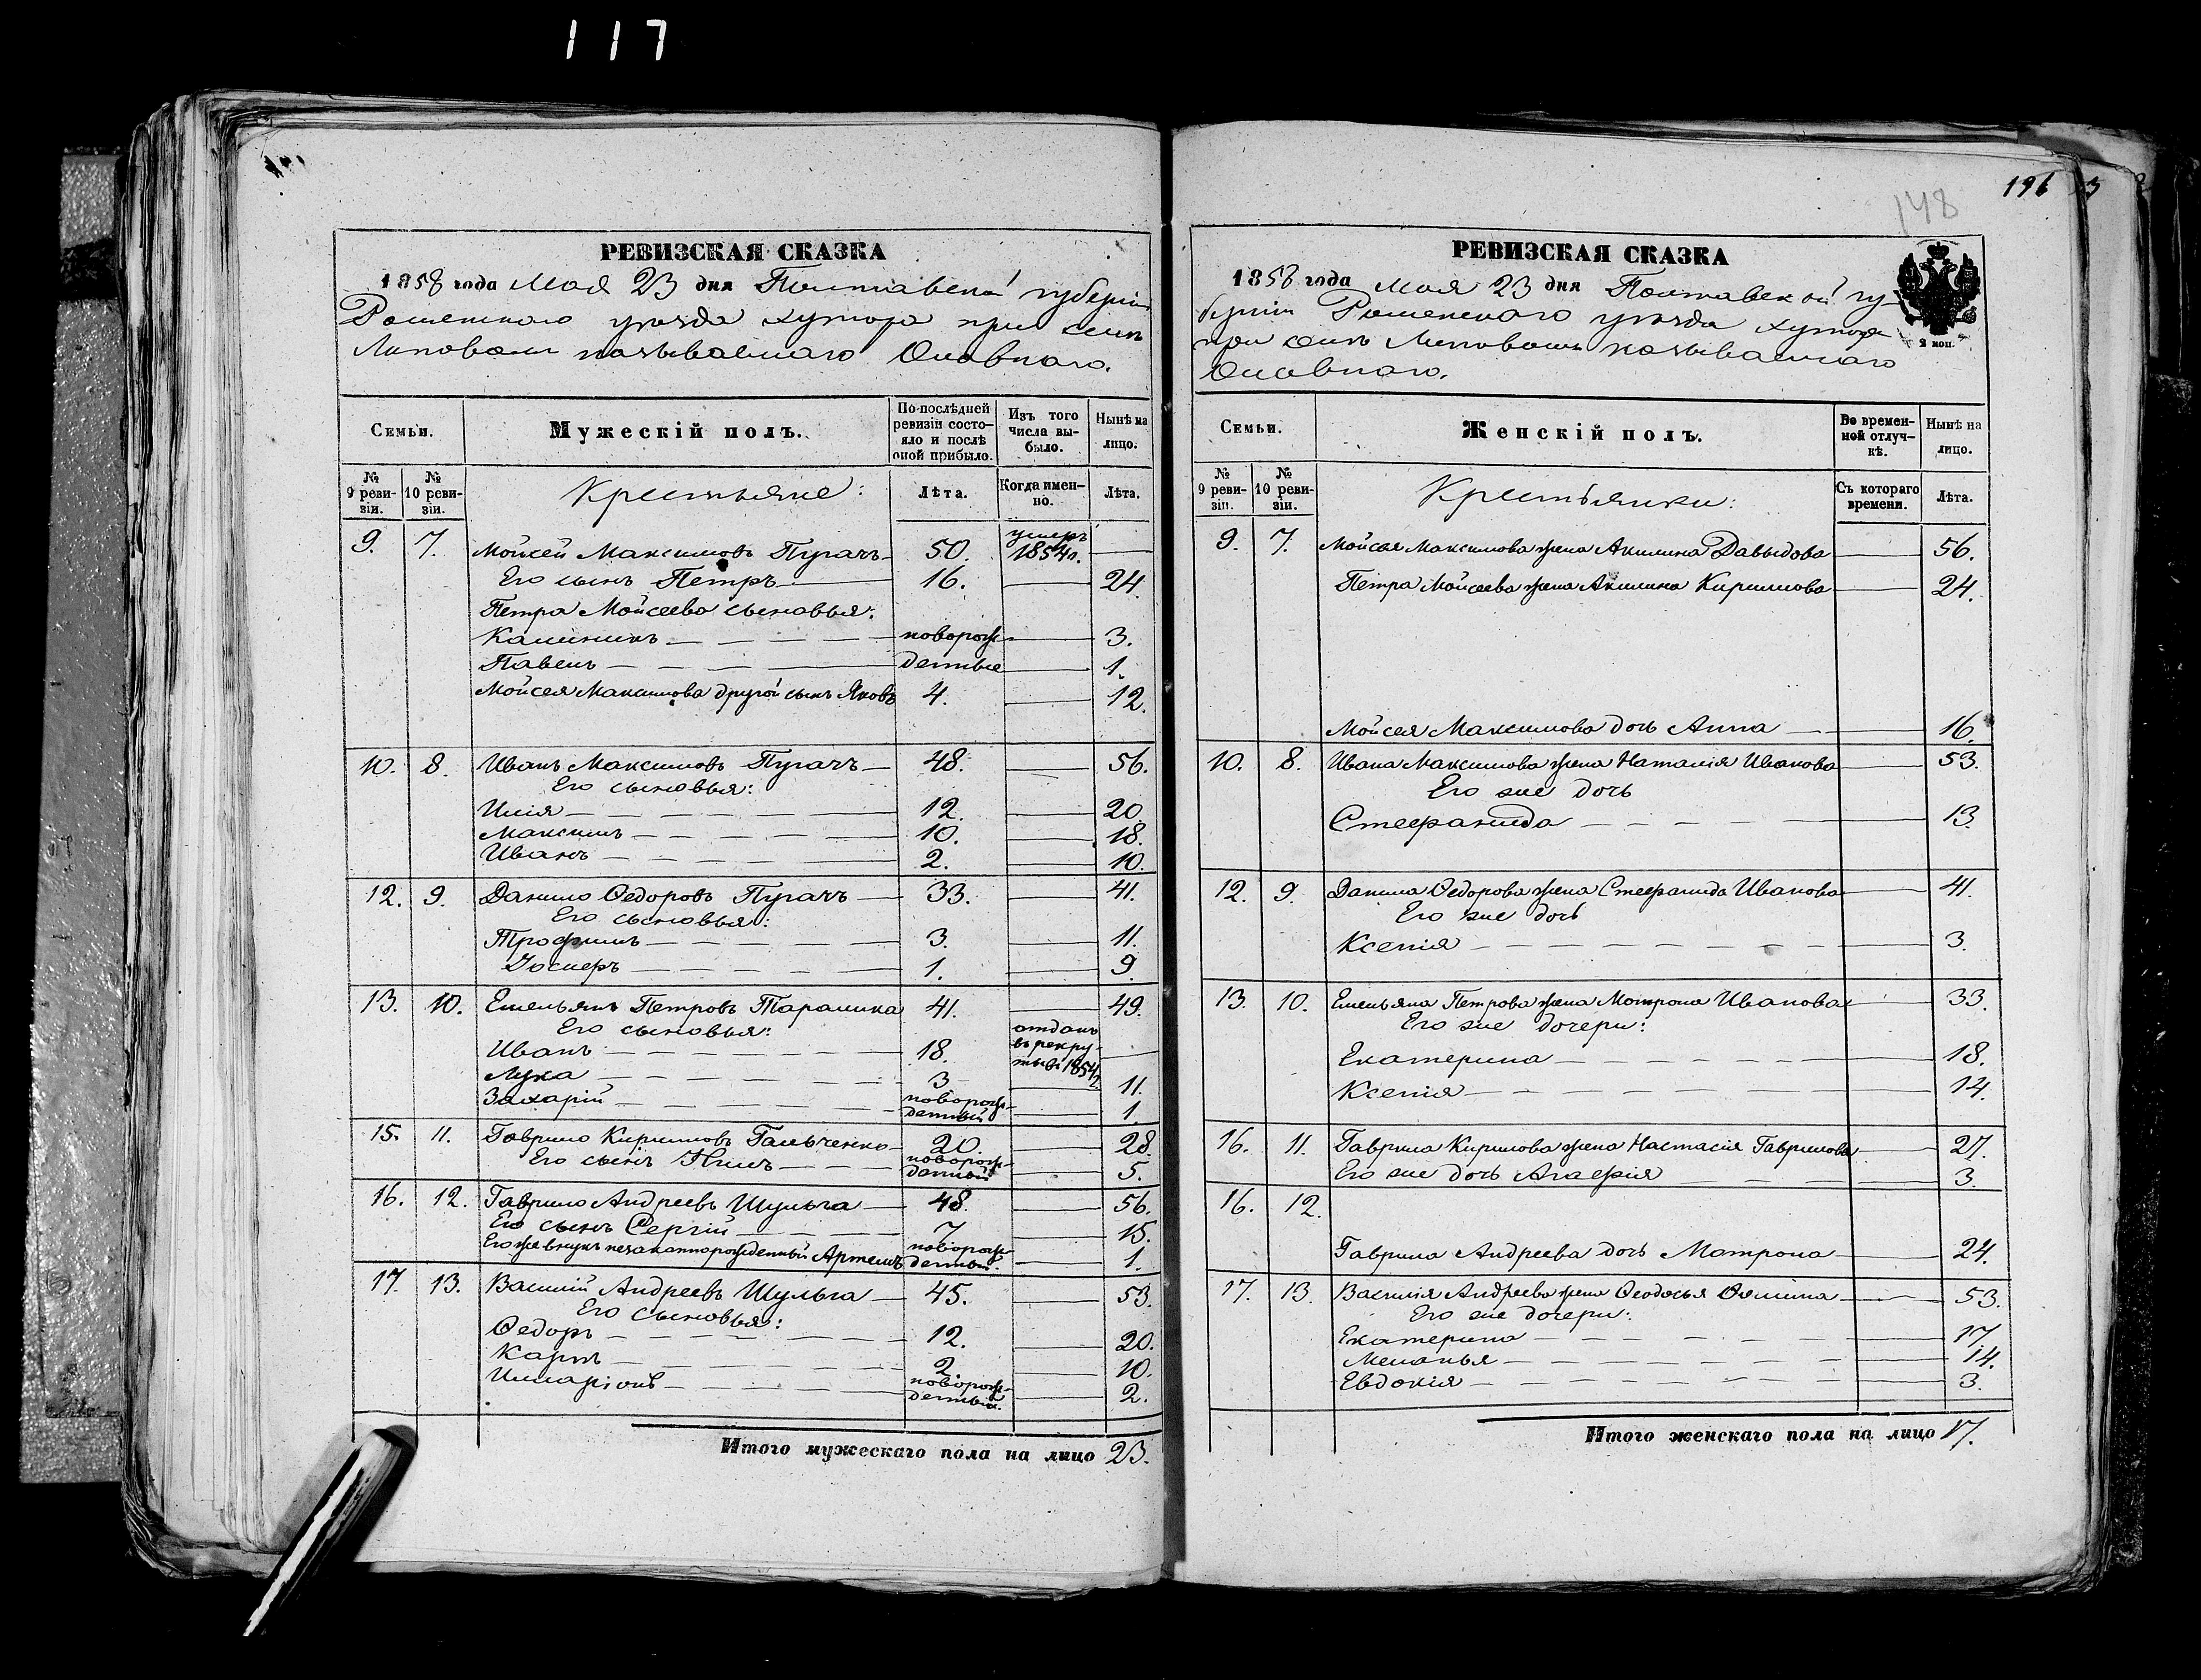 117
РЕВИЗСКАЯ СКАЗКА
1858 года Мая 23 дня Полтавской губерніи
Роменскаго уѣзда хутора при селѣ
Липовомъ называемаго
Семьи.
Мужескій полъ.
По послѣдней ревизіи состояло и послѣ оной прибыло.
Изъ того числа выбыло.
Нынѣ на лицо.
№ 9 ревизіи.
№ 10 ревизіи.
Крестьяне:
Лѣта.
Когда именно.
Лѣта.
9. 7. Мойсей Максимовъ Пугачъ 50. умеръ 1854 г.
Его сынъ Петръ 16. 24.
Петра Мойсеева сыновья:
Калиникъ новорож- 3.
Павелъ денные 1.
Мойсея Максимова другой сынъ Яковъ 4. 12.
10. 8. Иванъ Максимовъ Пугачъ 48. 56.
Его сыновья:
Илія 12. 20.
Максимъ 10. 18.
Иванъ 2. 10.
12. 9. Данило Ѳедоровъ Пугачъ 33. 41.
Его сыновья:
Трофимъ 3. 11.
1. 9.
13. 10. Емельянъ Петровъ Таралика 41. 49.
Его сыновья:
Иванъ 18. отданъ въ рекруты въ 1854 г.
Лука 3 11.
Захарій новорожденный 1.
15. 11. Гаврило Кириловъ Гальченко 20. 28.
Его сынъ новорожденный 5.
16. 12. Гаврило Андреевъ Шульга 48. 56.
Его сынъ Сергій 7 15.
Его же внукъ незаконнорожденный Артемъ новорожденный. 1.
17. 13. Василій Андреевъ Шульга 45. 53.
Его сыновья:
Ѳедоръ 12. 20.
Карпъ 2. 10.
Иларіонъ новорожденный. 2.
Итого мужескаго пола на лицо 23.
196 3
148
РЕВИЗСКАЯ СКАЗКА
1858 года Мая 23 дня Полтавской гу-
берніи Роменскаго уѣзда хутора
при селѣ Липовомъ называемаго
2 коп.
Семьи.
Женскій полъ.
Во временной отлучкѣ.
Нынѣ на лицо.
№ 9 ревизіи.
№ 10 ревизіи.
Крестьянки:
Съ котораго времени.
Лѣта.
9. 7. Мойсея Максимова жена Акилина Давыдова 56.
Петра Мойсеева жена Акилина Кирилова 24.
Мойсея Максимова дочь Анна 16.
10. 8. Ивана Максимова жена Наталія Иванова 53.
Его же дочь
Стефанида 13.
12. 9. Данила Ѳедорова жена Стефанида Иванова 41.
Его же дочь
Ксенія 3.
13. 10. Емельяна Петрова жена Мотрона Иванова 33.
Его же дочери:
Екатерина 18.
Ксенія 14.
16. 11. Гаврила Кирилова жена Настасія Гаврилова 27.
Его же дочь Агафія 3.
16. 12.
Гаврила Андреева дочь Матрона 24.
17. 13. Василія Андреева жена Ѳеодосья Ѳомина 53.
Его же дочери:
Екатерина 17.
Меланья 14.
Евдокія 3.
Итого женскаго пола на лицо 17.